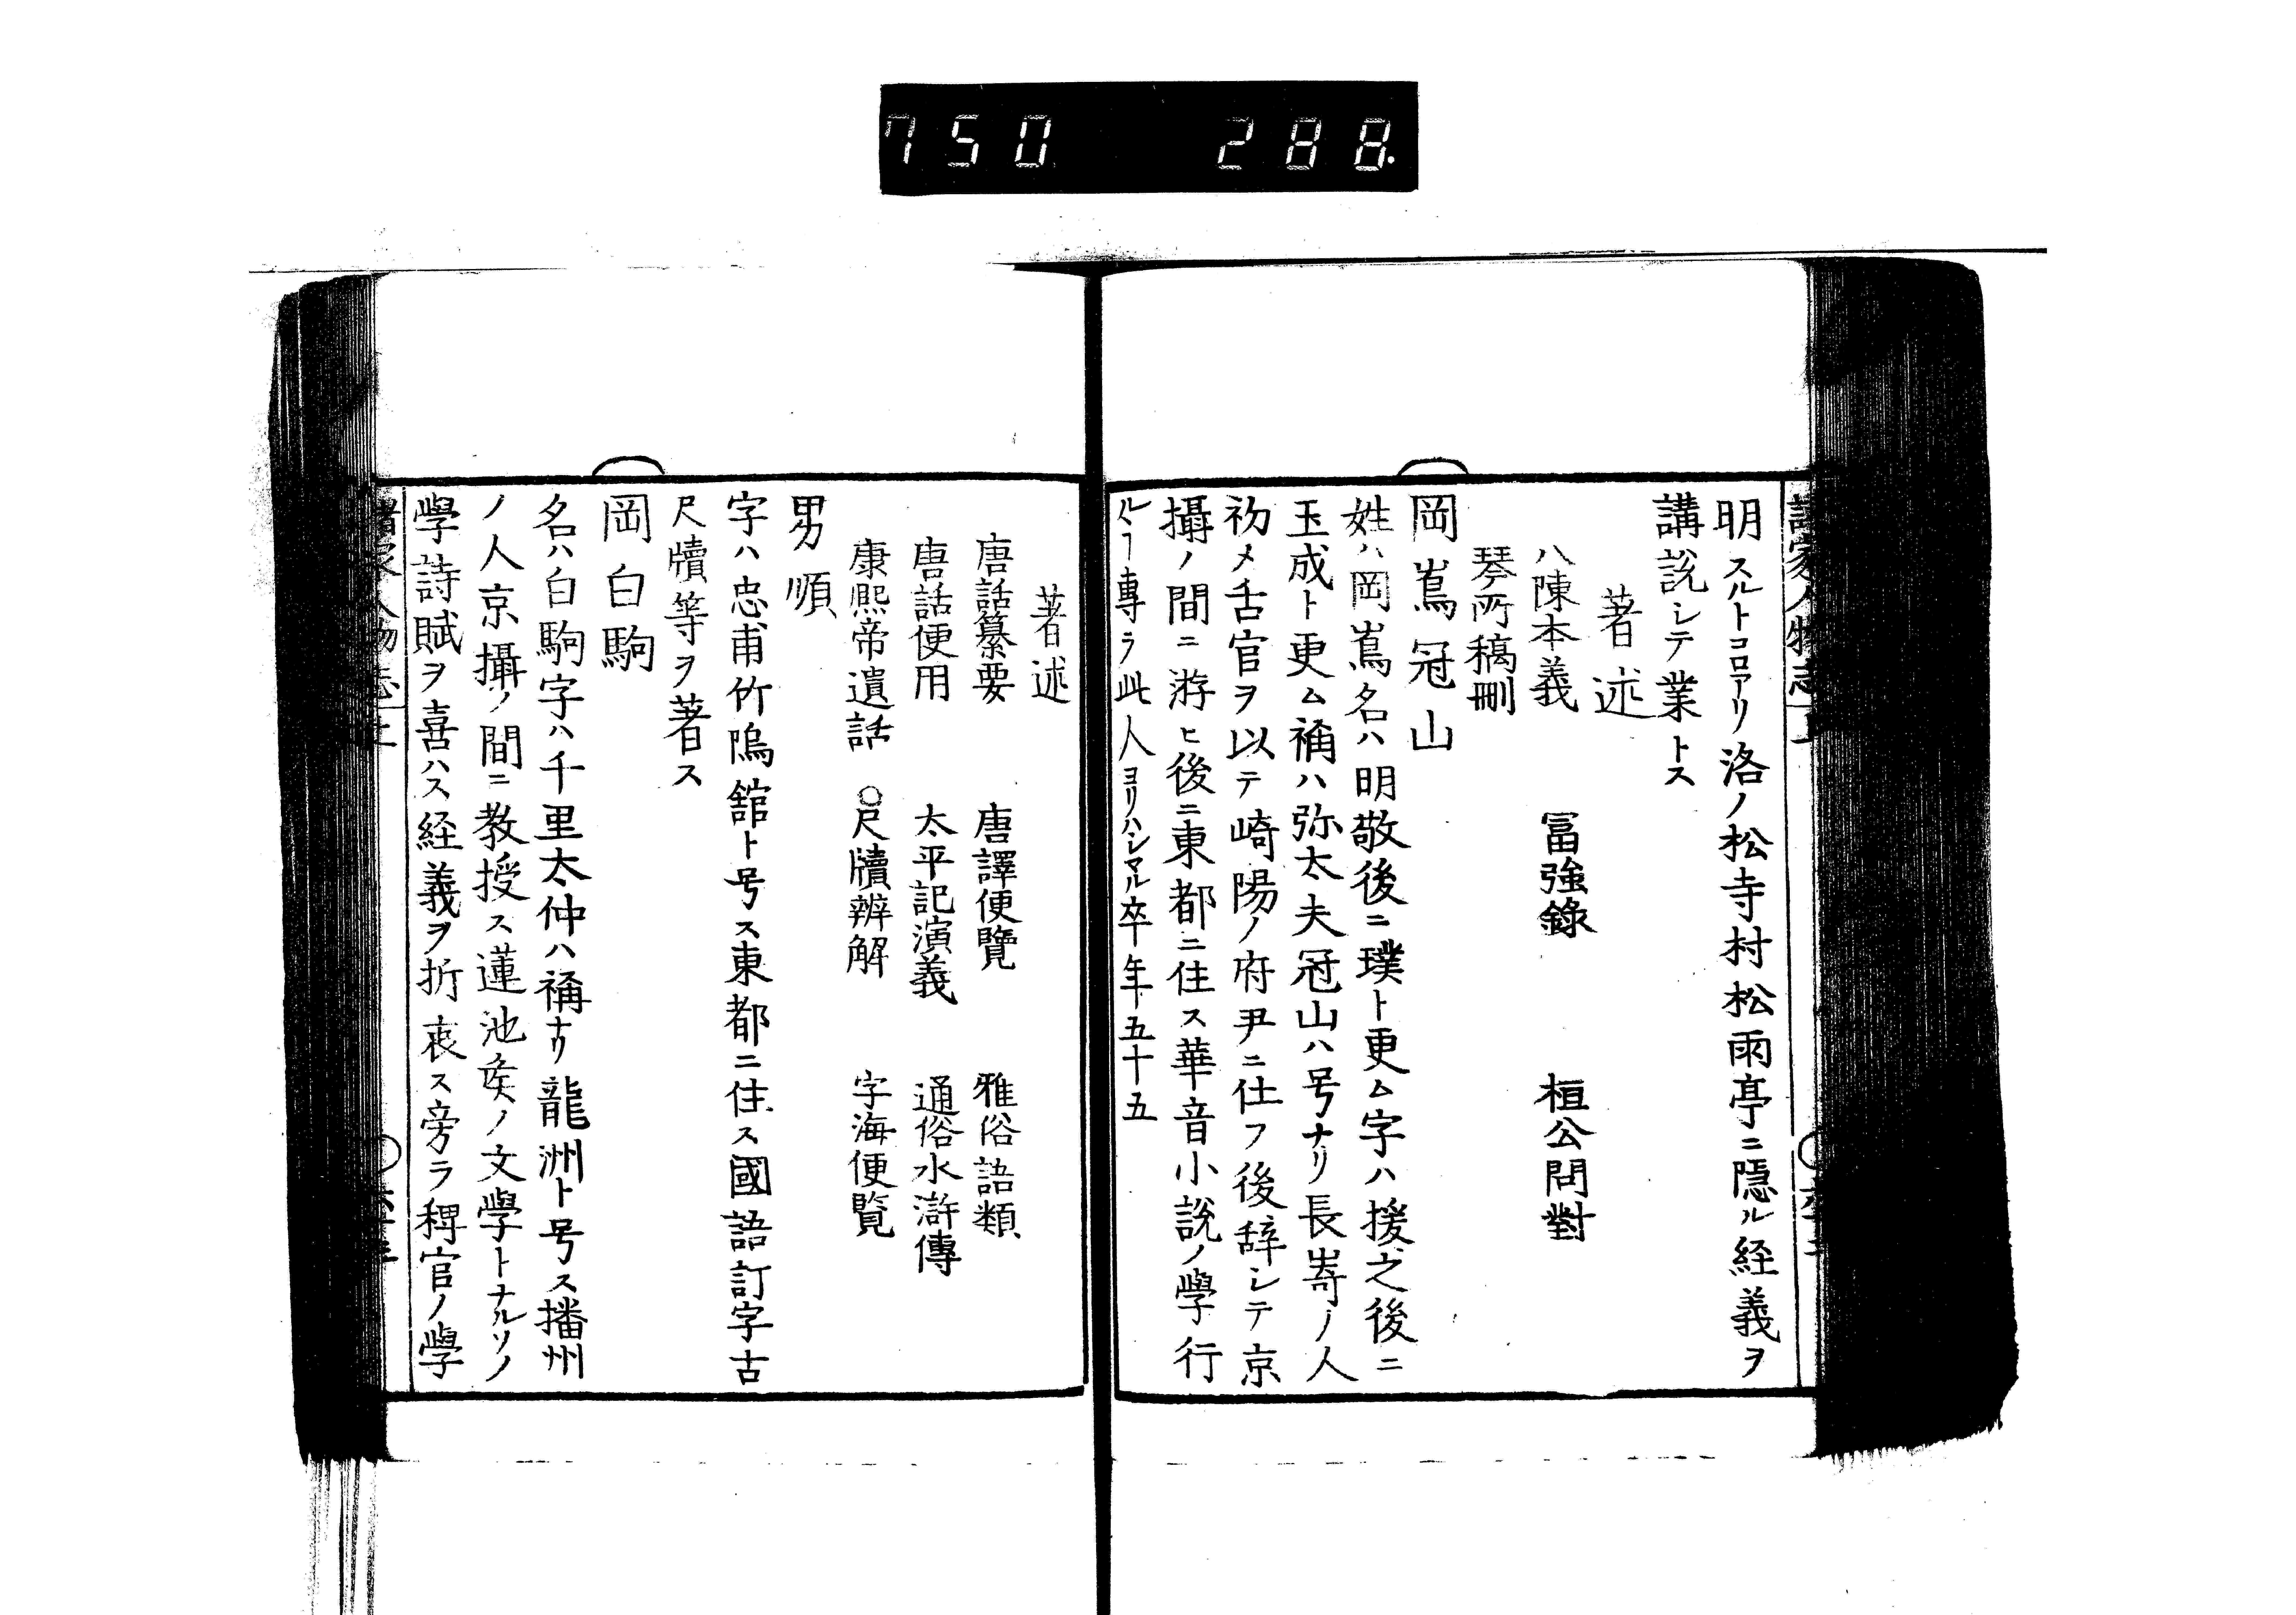 750 288.
明スルトコロアリ洛ノ松寺村松雨亭ニ隠ル経義ヲ
講説シテ業トス
著述
八陳本義 冨強錄 桓公問對
琴所稿刪
岡嶌冠山
姓ハ岡嶌名ハ明敬後ニ璞ト更ム字ハ援之後ニ
玉成ト更ム称ハ弥太夫冠山ハ号ナリ長嵜ノ人
初メ舌官ヲ以テ崎陽ノ府尹ニ仕フ後辞シテ京
攝ノ間ニ游ヒ後ニ東都ニ住ス華音小説ノ學行
ルヽヿ専ラ此人ヨリハシマル卒年五十五
著述
唐話纂要 唐譯便覽 雅俗語類
唐話便用 太平記演義 通俗水滸傳
康熙帝遺話 〇尺牘辨解 字海便覧
男順
字ハ忠甫竹隝舘ト号ス東都ニ住ス國語訂字古
尺牘等ヲ著ス
岡白駒
名ハ白駒字ハ千里太仲ハ称ナリ龍洲ト号ス播州
ノ人京攝ノ間ニ教授ス蓮池矦ノ文學トナルソノ
學詩賦ヲ喜ハス経義ヲ折衷ス旁ラ稗官ノ學